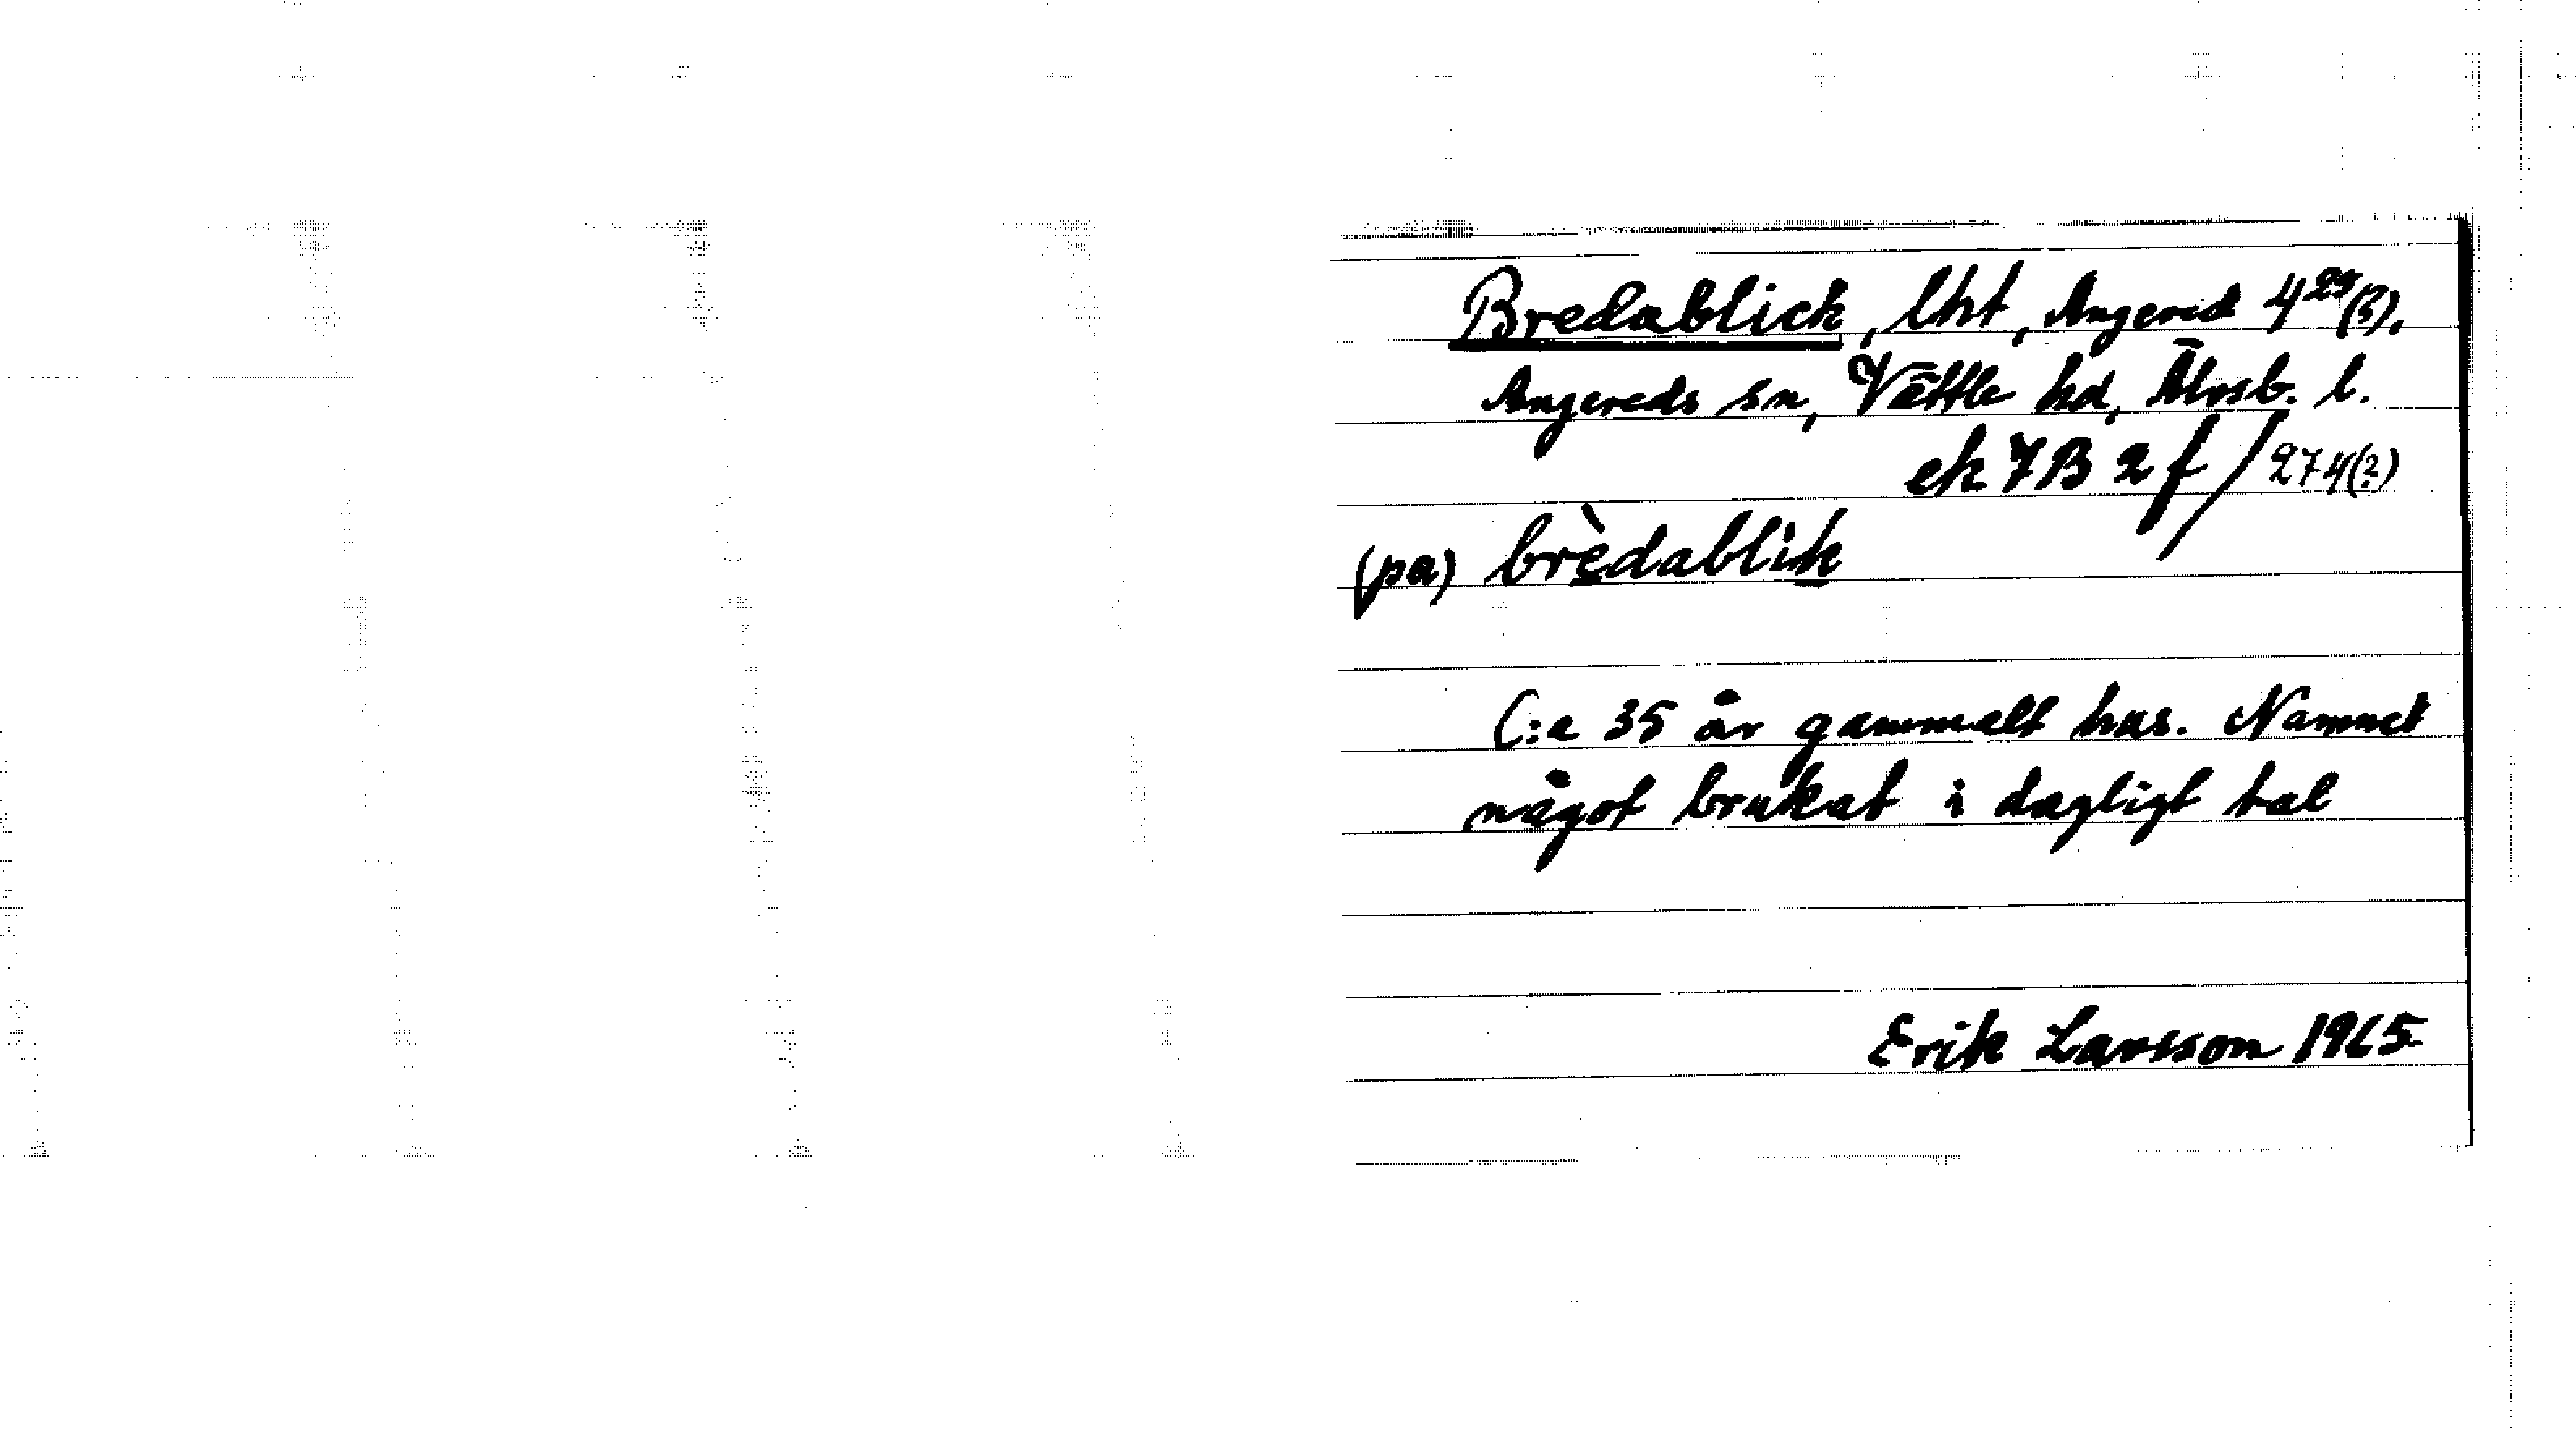 Bredablick, lht, Angered 4²⁹(?),
Angereds sn, Vättle hd, Älvsb. l.
ek 7B 2 f / 274(?)
(pa) brèdablik
C:a 35 år gammalt hus. Namnet
något brukat i dagligt tal
Erik Larsson 1965